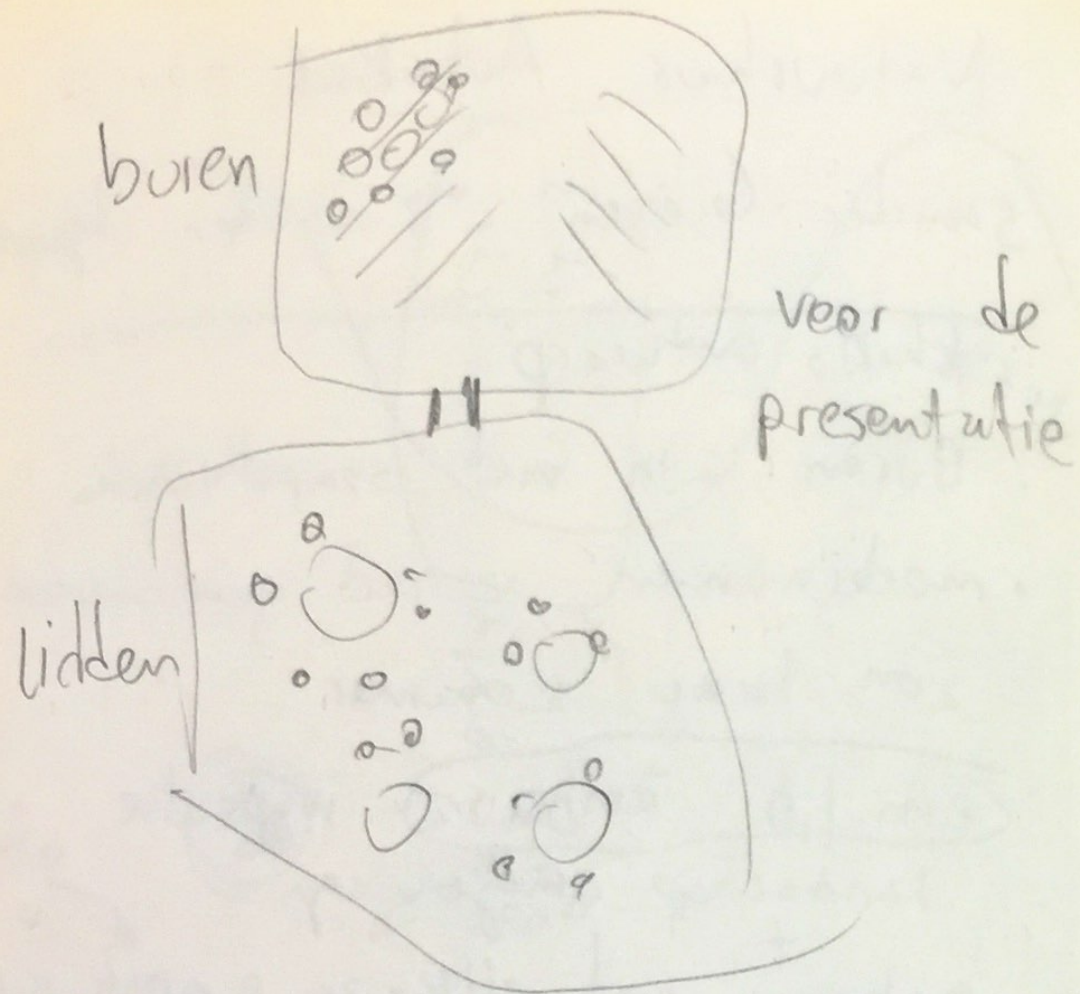 buren
voor de
presentatie
lidden